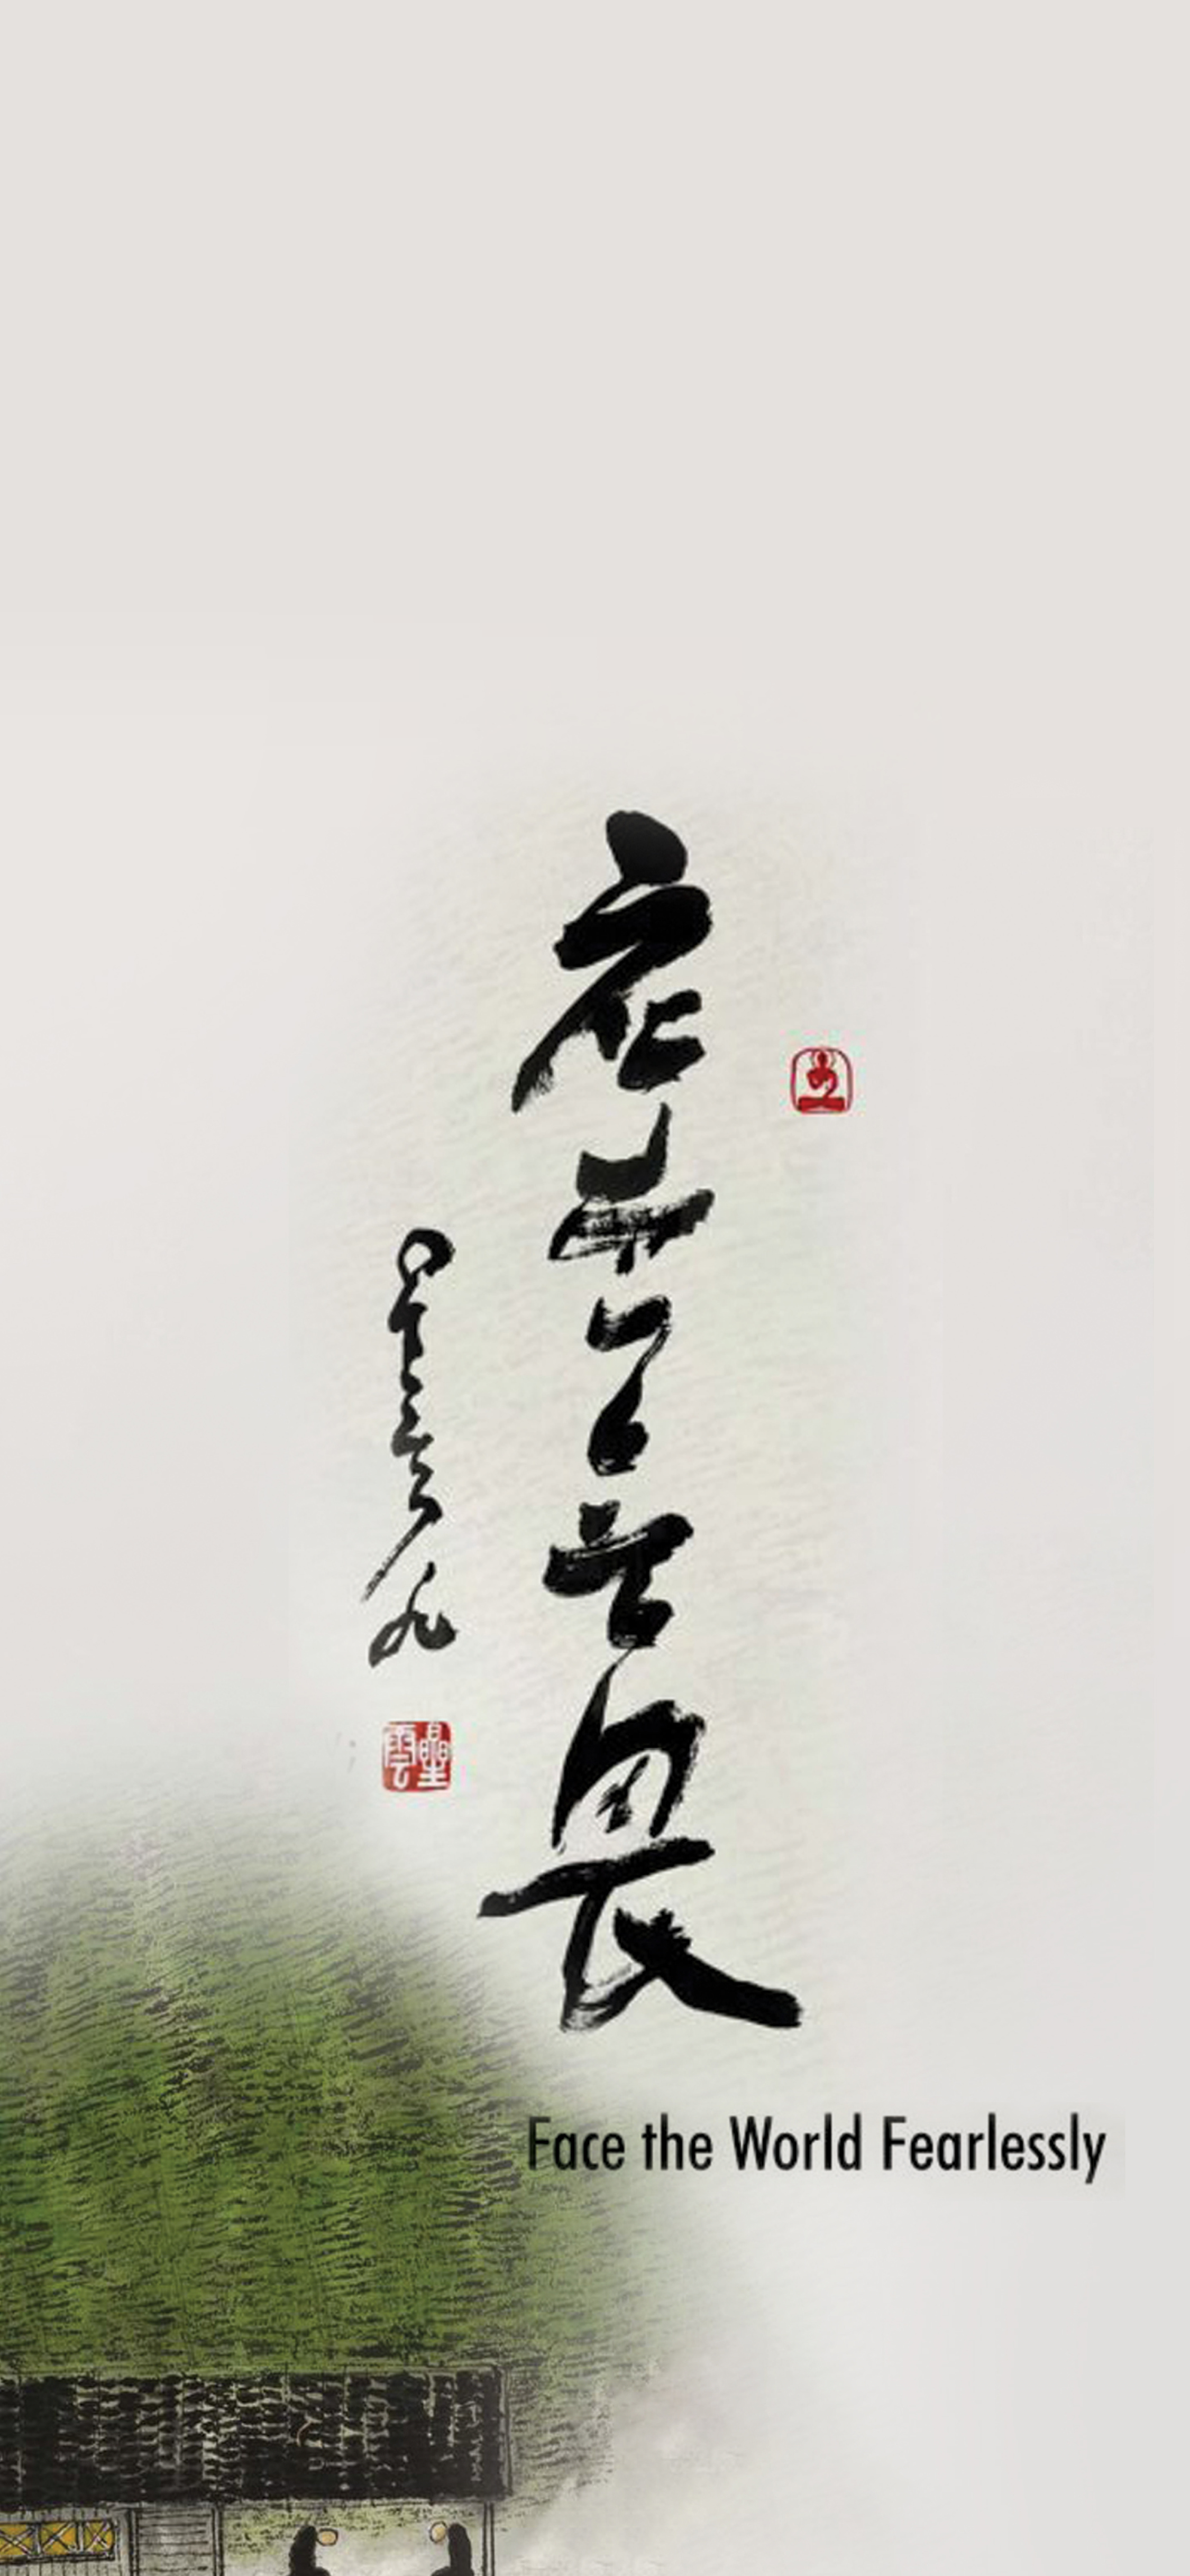 應無畏
星雲
星雲
Face the World Fearlessly